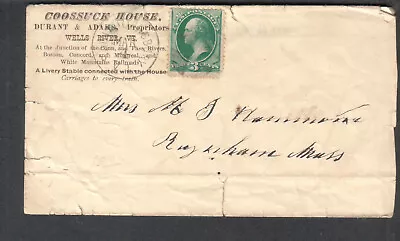 COOSSUCK HOUSE,
DURANT & ADAMS, Proprietors
WELLS RIVER, Vt.
At the junction of the Conn. and Pass. Rivers,
Boston, Concord, and Montreal, and
White Mountains Railroads.
A Livery Stable connected with the House
Carriages to every train.
3
Mrs M J
Mass